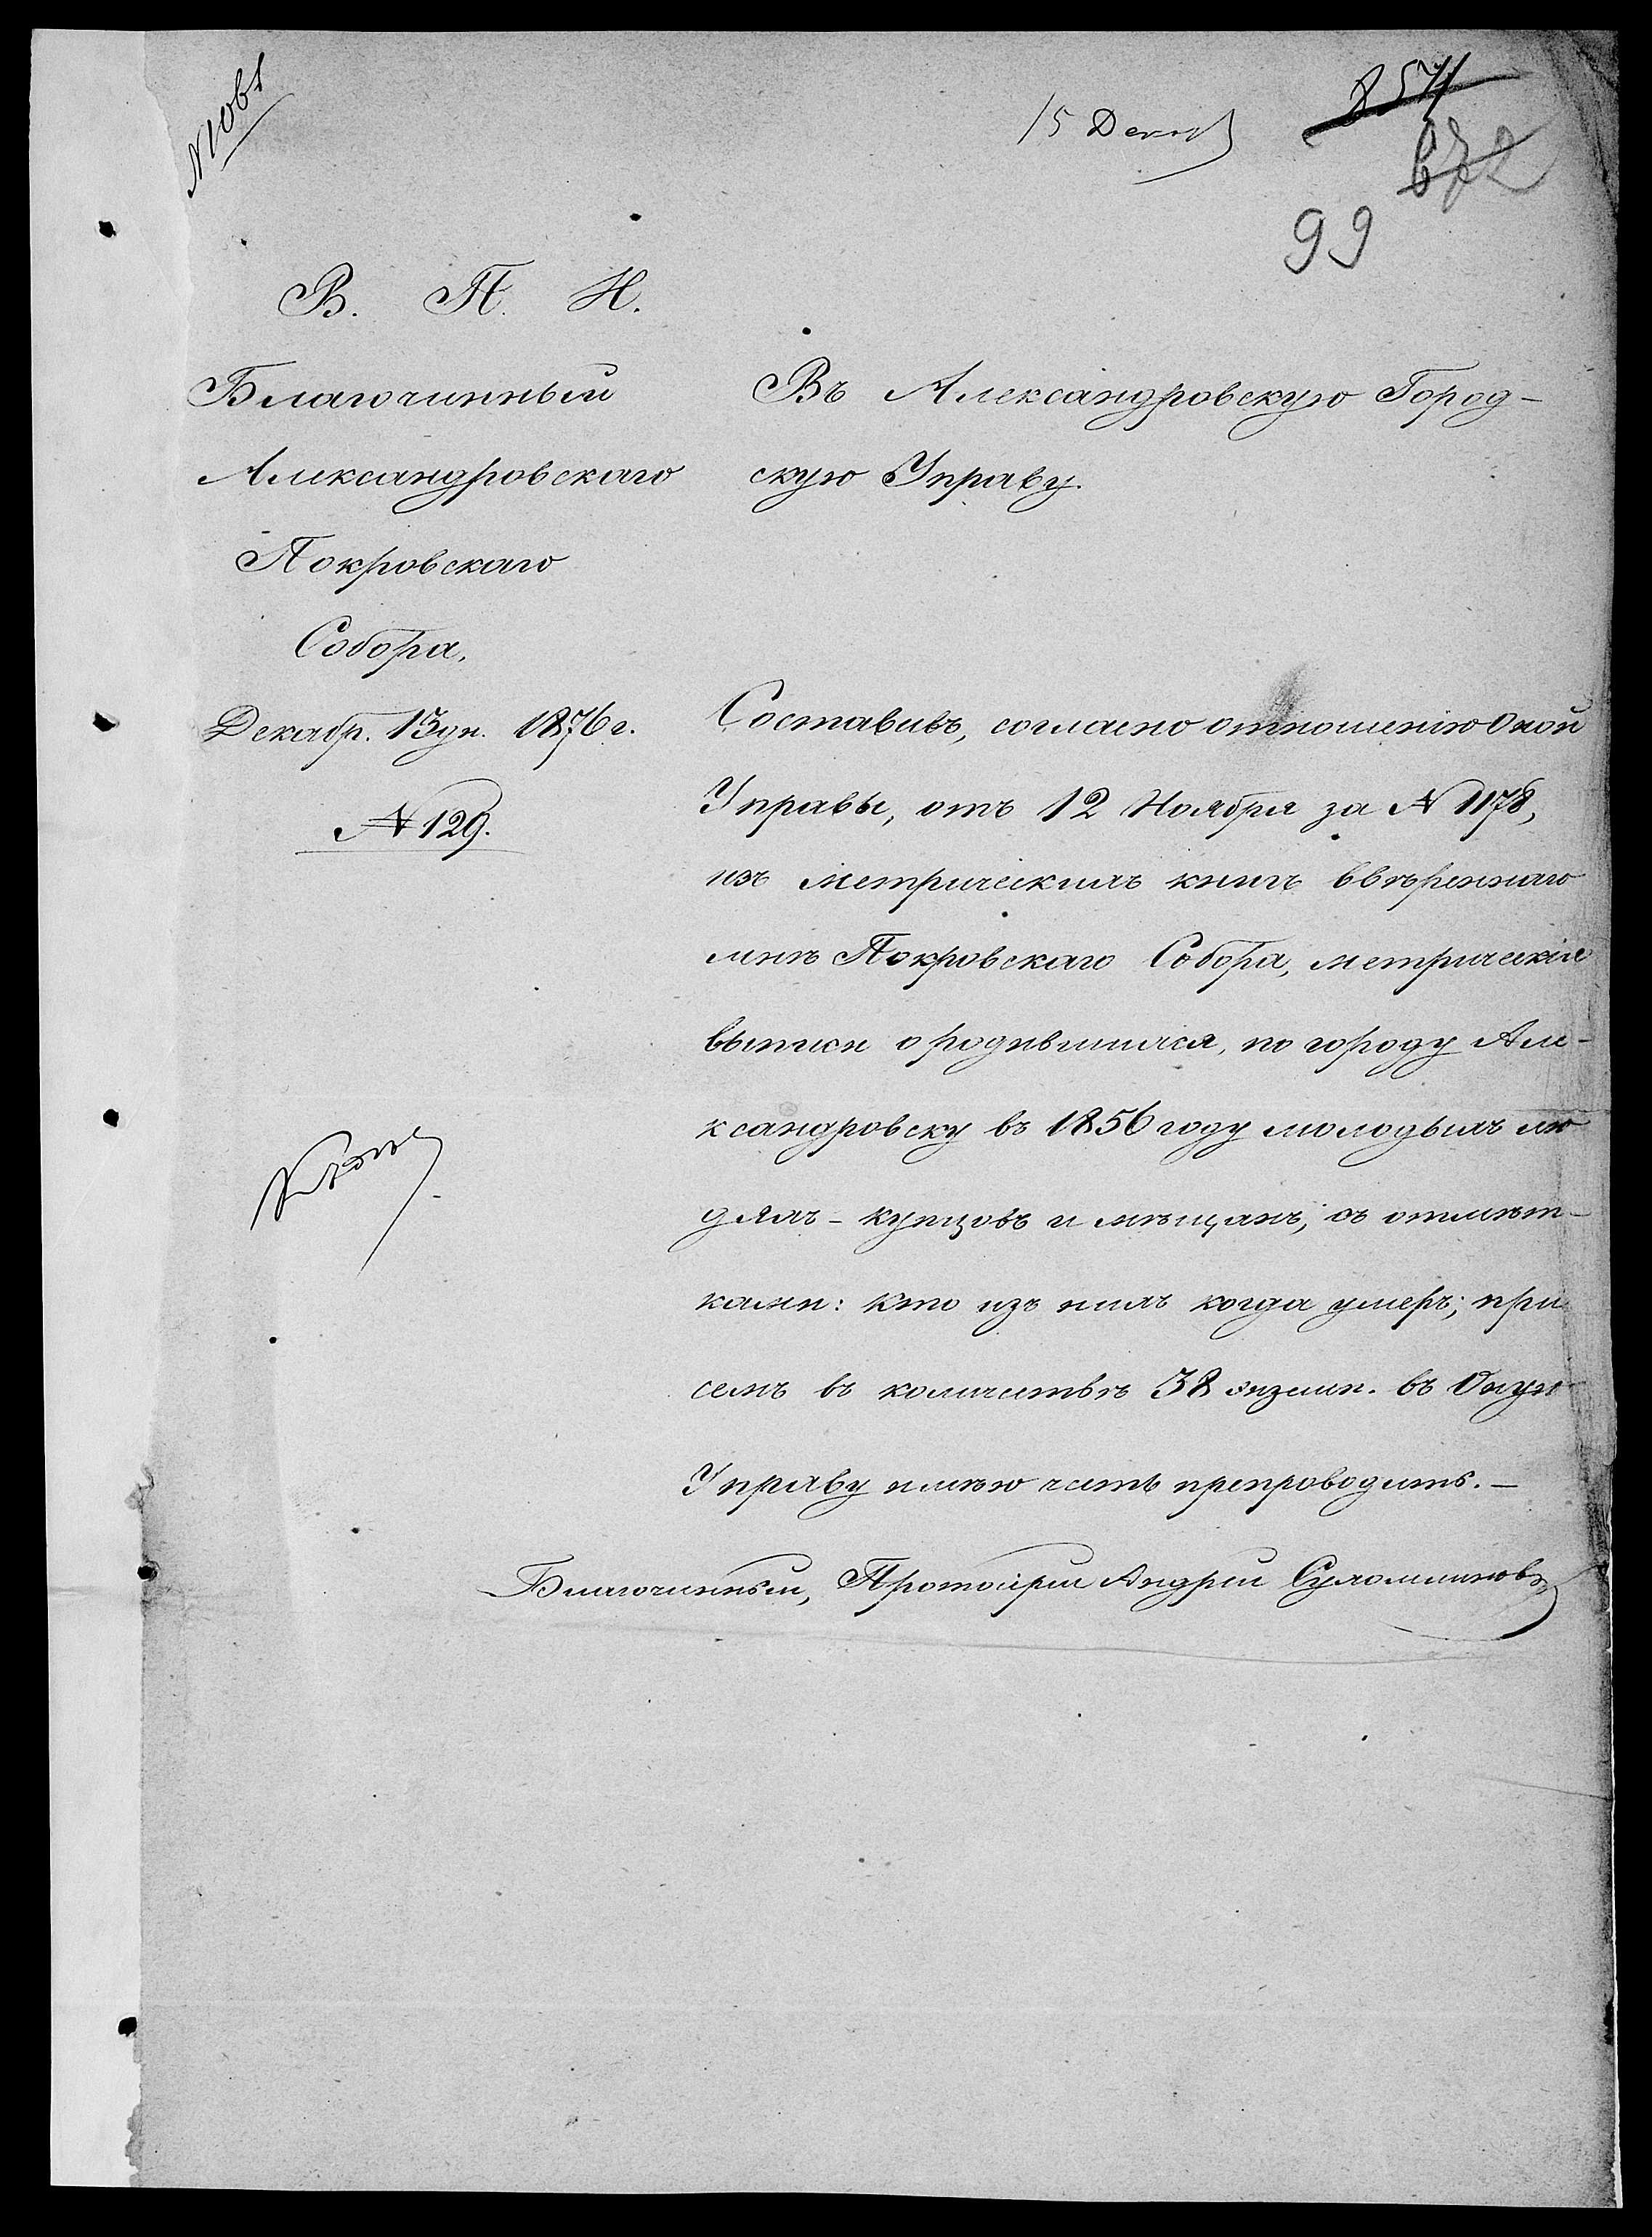 N 1061
15 Декаб
99
В. П. Н.
Благочинный
Александровскаго
Покровскаго
Собора.
Декабр. 13 дн. 1876 г.
№ 129.
Въ Александровскую Город-
скую Управу.
Составивъ, согласно отношенію Оной
Управы, отъ 12 Ноября за № 1178,
изъ метрическихъ книгъ ввѣреннаго
мнѣ Покровскаго Собора, метрическія
выписи о родившихся, по городу Але-
ксандровску въ 1856 году молодыхъ лю
дяхъ - купцовъ и мѣщанъ, съ отмѣт-
ками: кто изъ нихъ когда умеръ; при
семъ въ количествѣ 38 экземп. въ Оную
Управу имѣю честь препроводить. —
Благочинный, Протоіерей Андрей